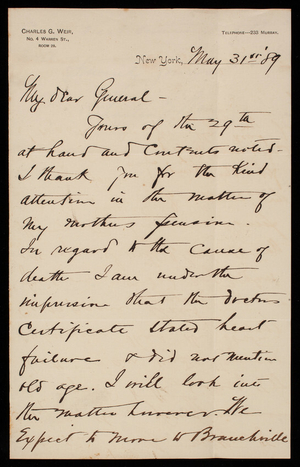 CHARLES G. WEIR,
No. 4 WARREN ST.,
ROOM 26.
TELEPHONE—833 MURRAY.
New York, May 31st '89
My dear General -
Yours of the 29th
at hand and contents noted -
I thank you for the kind
attention in the matter of
my mothers pension.
In regard to the cause of
death I am under the
impression that the doctors
certificate stated heart
failure & did not mention
old age. I will look into
the matter however. We
Expect to move to Branchville